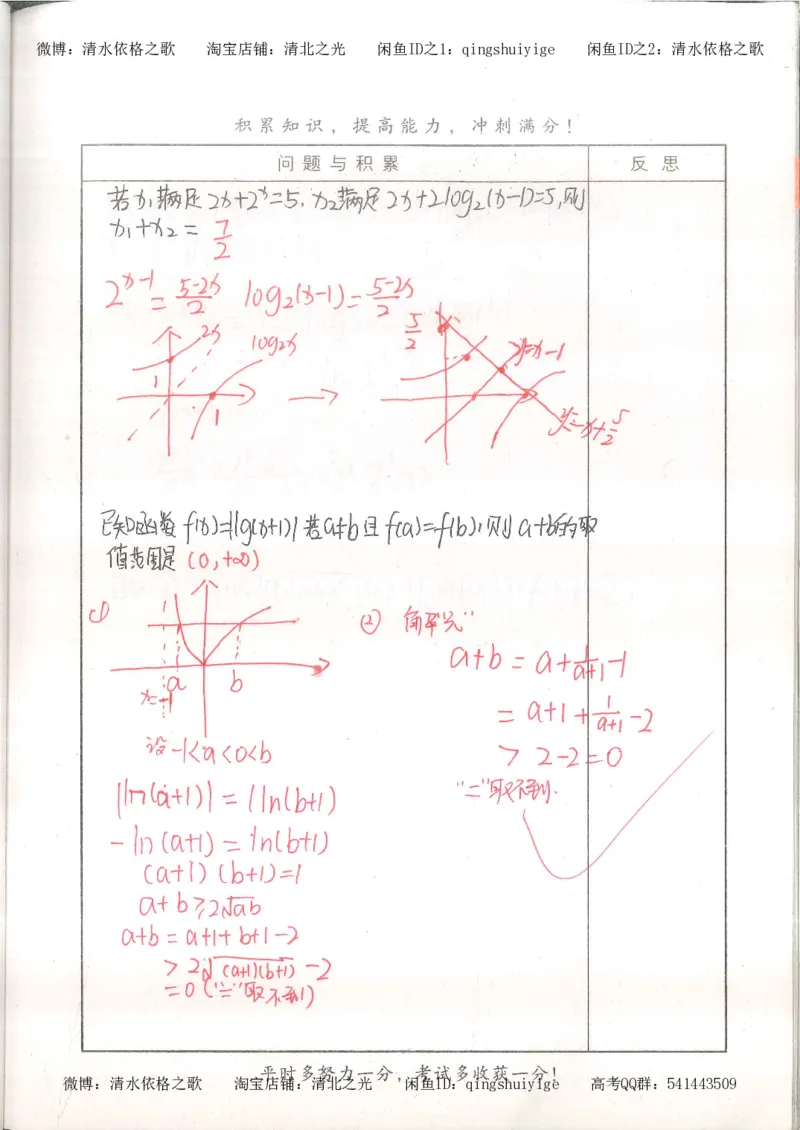 微博：清水依格之歌 淘宝店铺：清北之光 闲鱼ID之1：qingshuiyige 闲鱼ID之2：清水依格之歌
积累知识，提高能力，冲刺满分！
问题与积累 反思
若x₁满足2x+2ˣ=5, x₂满足2x+2log₂(x-1)=5,则
x₁+x₂= 7/2
2ˣ⁻¹= (5-2x)/2 log₂(x-1)= (5-2x)/2
2ˣ log₂x 5/2 y=x-1
1 1 y=-x+5/2
已知函数f(x)=|lg(x+1)|若a≠b且f(a)=f(b),则a+b的取
值范围是(0,+∞)
①
a b
x=-1
设-1<a<0<b
|ln(a+1)|=|ln(b+1)
-ln(a+1)=ln(b+1)
(a+1)(b+1)=1
a+b≥2√ab
a+b=a+1+b+1-2
>2√(a+1)(b+1) -2
=0("="取不到)
② 消"元"
a+b=a+1/(a+1)-1
=a+1+1/(a+1)-2
>2-2=0
"="取不到.
平时多努力一分，考试多收获一分！
微博：清水依格之歌 淘宝店铺：清北之光 闲鱼ID：qingshuiyige 高考QQ群：541443509